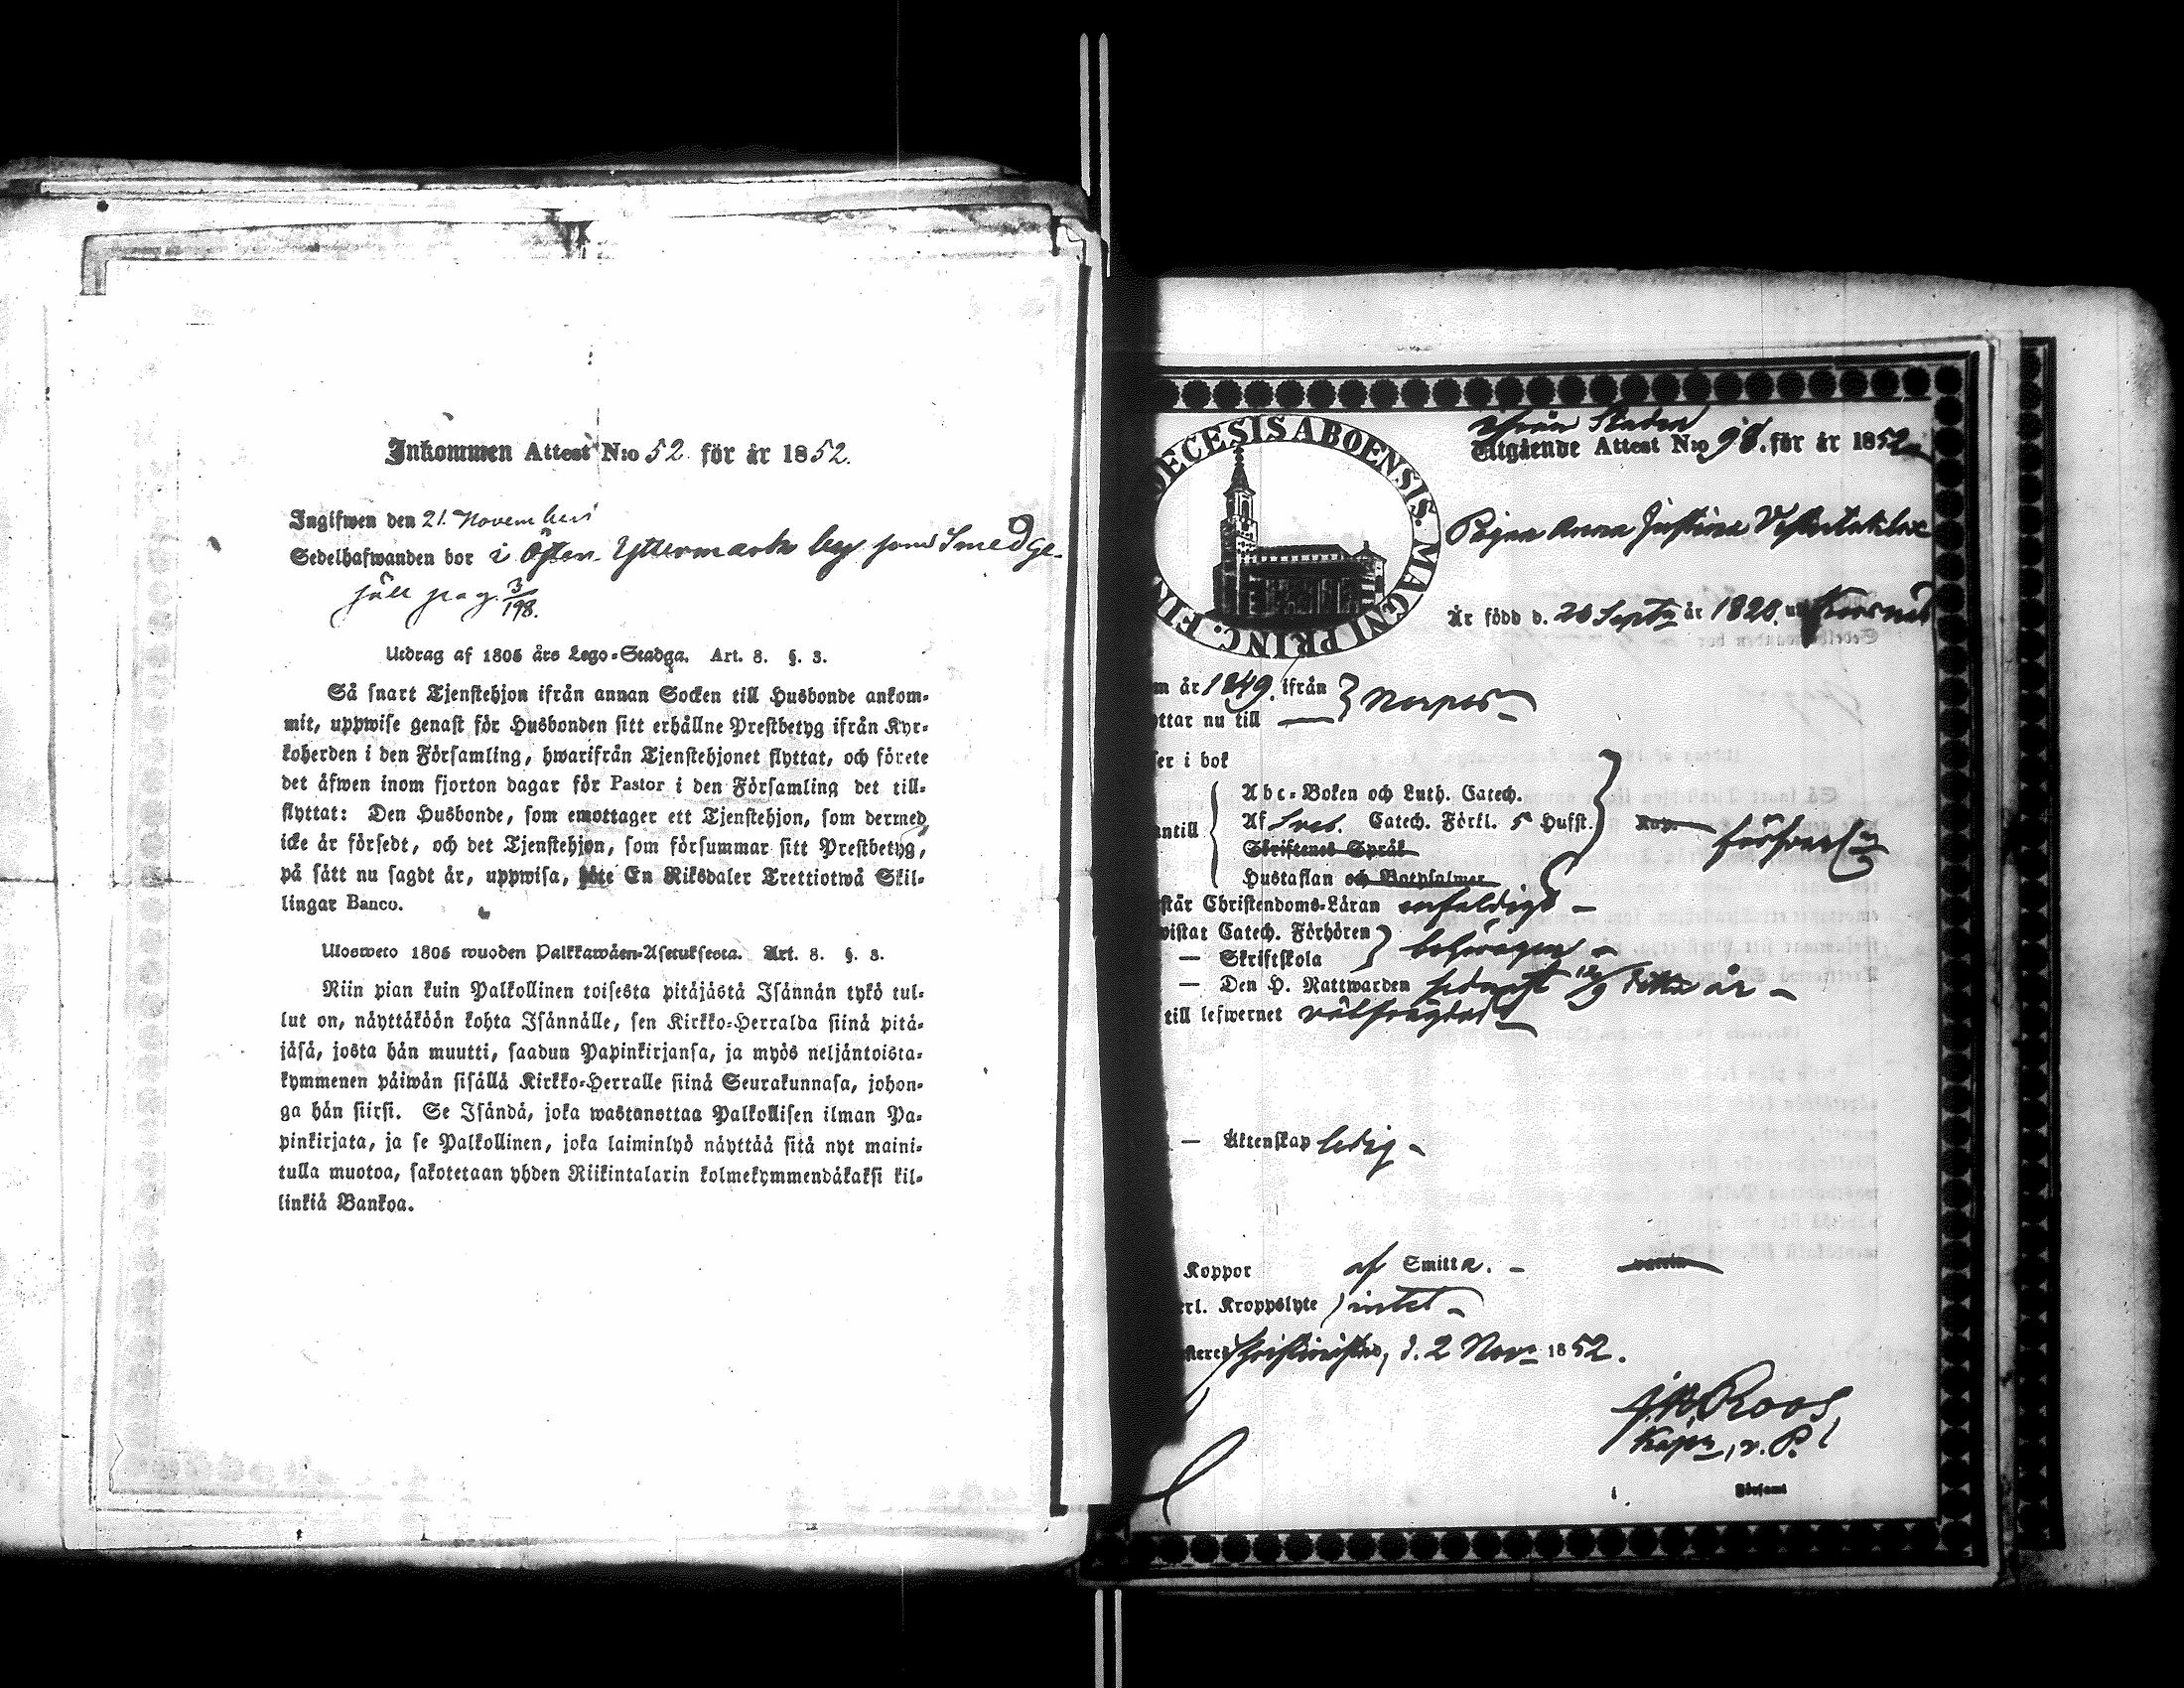 Inkommen Attest N:o 52 för år 1852.
Ingifwen den 21. Novemberi
Sedelhafwanden bor i Öster Yttermark by som Smedge-
säll pag. 3/198.
Utdrag af 1805 års Lego-Stadga. Art. 8. §. 3.
Så snart Tjenstehjon ifrån annan Socken till Husbonde ankom-
mit, uppwise genast för Husbonden sitt erhållne Prestbetyg ifrån Kyr-
koherden i den Församling, hwarifrån Tjenstehjonet flyttat, och förete
det äfwen inom fjorton dagar för Pastor i den Församling det till-
flyttat: Den Husbonde, som emottager ett Tjenstehjon, som dermed
icke är försedt, och det Tjenstehjon, som försummar sitt Prestbetyg,
på sätt nu sagdt är, uppwisa, böte En Riksdaler Trettiotwå Skil-
lingar Banco.
Ulosweto 1805 wuoden Palkkawäen-Asetuksesta. Art. 8. §. 3.
Niin pian kuin Palkollinen toisesta pitäjästä Isännän tykö tul-
lut on, näyttäköön kohta Isännälle, sen Kirkko-Herralda siinä pitä-
jäsä, josta hän muutti, saadun Papinkirjansa, ja myös neljäntoista-
kymmenen päiwän sisällä Kirkko-Herralle siinä Seurakunnasa, johon-
ga hän siirsi. Se Isändä, joka wastanottaa Palkollisen ilman Pa-
pinkirjata, ja se Palkollinen, joka laiminlyö näyttää sitä nyt maini-
tulla muotoa, sakotetaan yhden Riikintalarin kolmekymmendäkaksi kil-
linkiä Bankoa.
ECESIS ABOENSIS. MAGNI PRINC. FIN
ifrån Staden
Utgående Attest N:o 98. för år 1852
Pigan Anna Justina
Är född d. 26 Sept. år 1820. uti Korsnäs
m år 1849. ifrån } Nerpes
ttar nu till —
ser i bok
Abc-Boken och Luth. Catech.
antill Af Sveb. Catech. Förkl. 5 Hufst.
Skriftenes Språk
Hustaflan och Botpsalmer
försvarl.
står Christendoms-Läran enfaldigt –
wistat Catech. Förhören } behörigen –
— Skriftskola
— Den H. Nattwarden sednast 12/9 detta år –
till lefwernet välfrägdad
— Äktenskap ledig –
Koppor af Smitta. –
erl. Kroppslyte intet –
steret Christinestad, d. 2 Nov. 1852.
Roos
v. P.
Församl